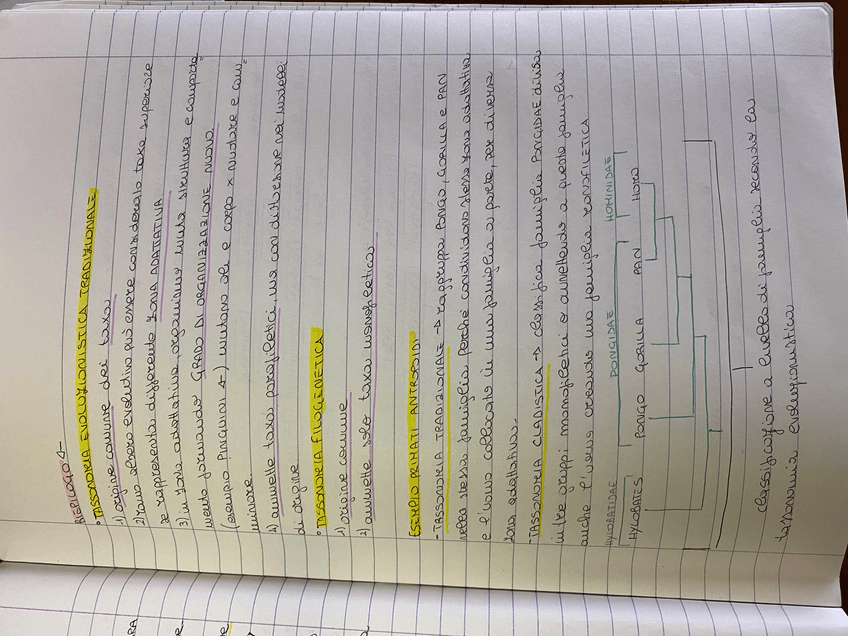 RIEPILOGO
• TASSONOMIA EVOLUZIONISTICA TRADIZIONALE
1) origine comune dei taxa
2) ramo albero evolutivo può essere considerato taxa superiore
se rappresenta differente ZONA ADATTATIVA
3) in zona adattativa organismo muta struttura e comporta=
mento formando GRADO DI ORGANIZZAZIONE NUOVO
(esempio PINGUINI → mutano ali e corpo x nuotare e cam=
minare
4) ammette taxa parafiletici, ma con distorsione nei
di origine
• TASSONOMIA FILOGENETICA
1) origine comune
2) ammette solo taxa monofiletici
ESEMPIO PRIMATI ANTROPOIDI
- TASSONOMIA TRADIZIONALE → raggruppa PONGO, GORILLA e PAN
nella stessa famiglia perché condividono stessa zona adattativa
e l'uomo collocato in una famiglia a parte, per diversa
zona adattativa.
- TASSONOMIA CLADISTICA → classifica famiglia PONGIDAE divisa
in tre gruppi monofiletici o annettendo a questa famiglia
anche l'uomo creando una famiglia MONOFILETICA
HYLOBATIDAE PONGIDAE HOMINIDAE
HYLOBATES PONGO GORILLA PAN HOMO
classificazione a livello di famiglia secondo la
tassonomia evoluzionistica